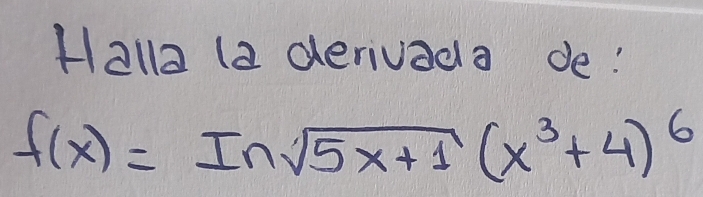 Halla la derivada de:
f(x) = In√5x+1 (x³+4)⁶